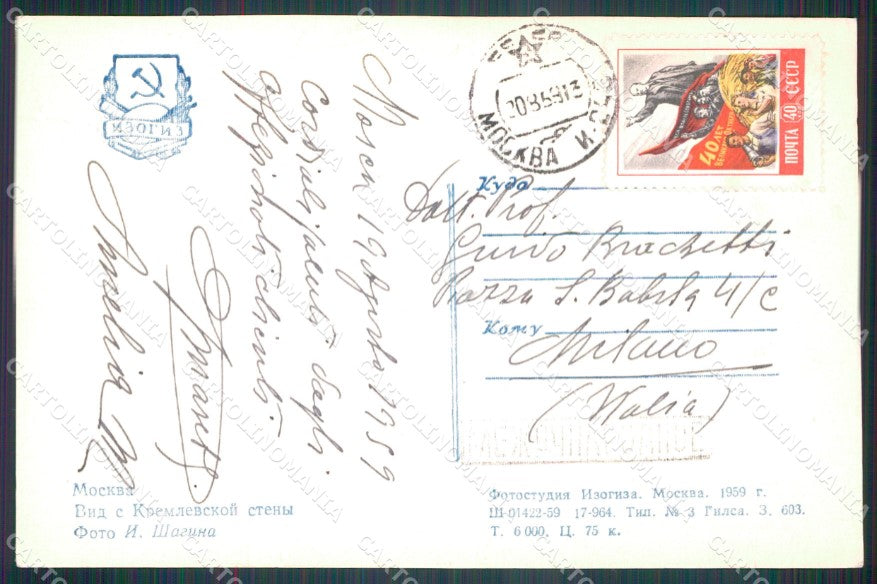 ИЗОГИЗ
МОСКВА
20 8 59 13
ПОЧТА 40 СССР
40 ЛЕТ
Mosca 19 Agosto 1959
Cordialmente dagli
affezionati clienti
Amelia M
Куда
Dott. Prof.
Guido Brachetti
Piazza S. Babila 4/c
Кому
Milano
(Italia)
МЕЖДУНАРОДНОЕ
Москва
Вид с Кремлевской стены
Фото И. Шагина
Фотостудия Изогиза. Москва. 1959 г.
Ш-01422-59 17-964. Тип. № 3 Гилса. З. 603.
Т. 6 000. Ц. 75 к.
CARTOLINOMANIA